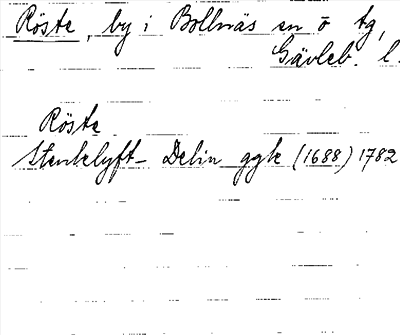 Röste, by i Bollnäs sn o tg,
Gävleb. l.
Röste
Stenklyft- Delin ggk (1688) 1782